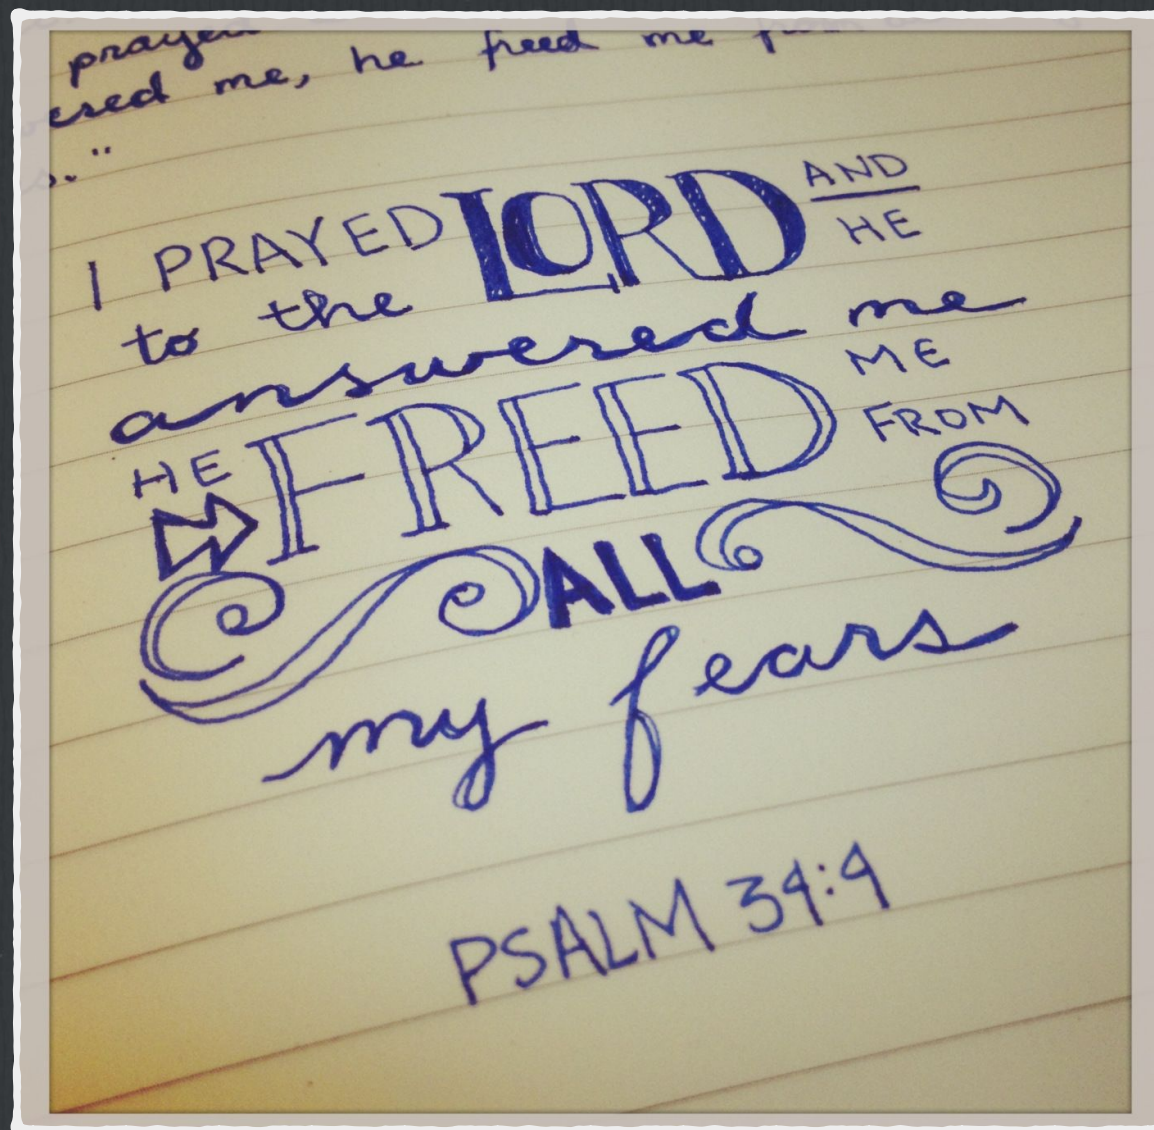 prayed
me, he freed me from
I PRAYED to the LORD AND HE
answered me
HE FREED ME FROM
ALL
my fears
PSALM 34:4